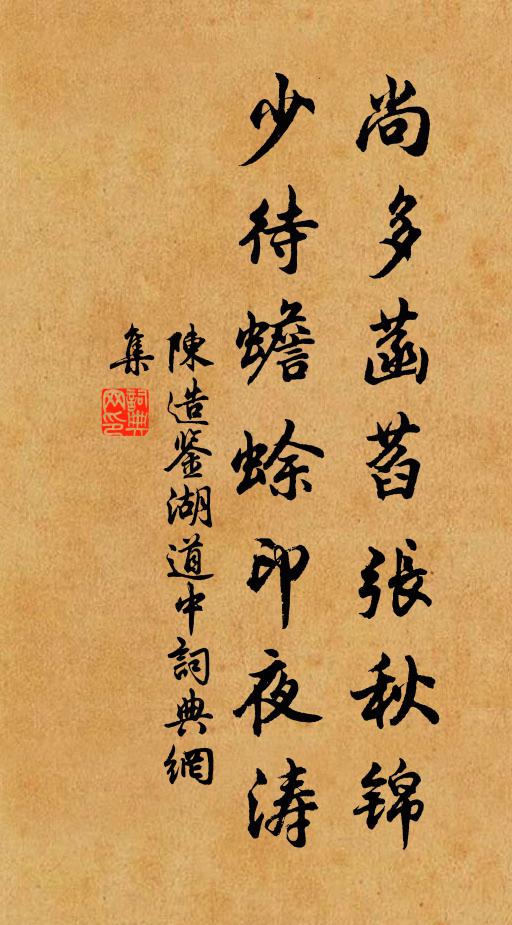 尚多菡萏張秋锦
少待蟾蜍印夜涛
陳造鉴湖道中詞典網
集
詞典
网印